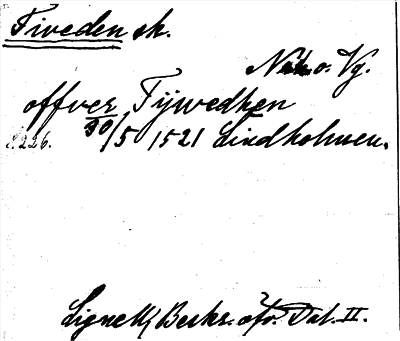 Tiveden sk.
När. o. Vg.
offver Tijwedhen
s. 226. 30/5 1521 Lindholmen.
Lignell, Beskr. öfv. Dal. II.